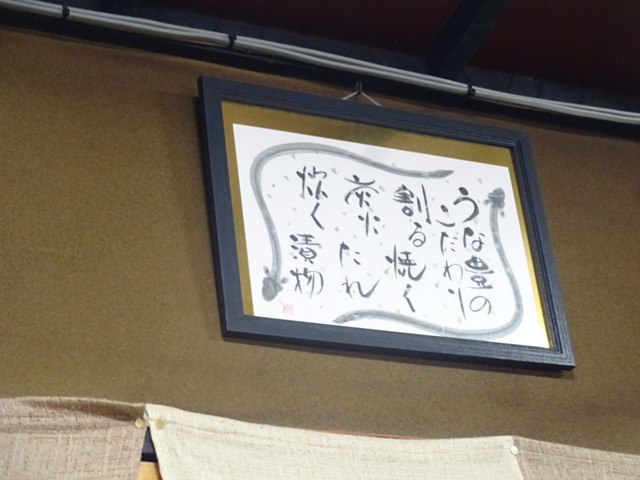 うな豊の
こだわり
割る焼く
炭火たれ
炊く漬物